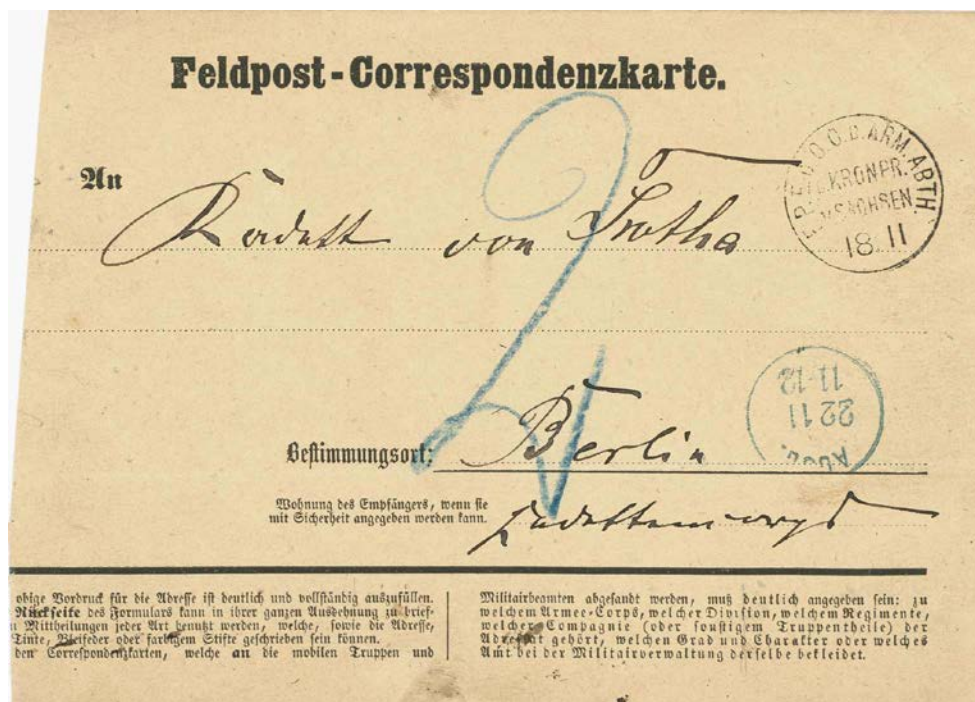 Feldpost-Correspondenzkarte.
An
Kadett von Trotha
F.P.EXP. O.C.D.ARM.ABTH.
KRONPR.
V.SACHSEN.
18 11
2
11-12
22 11
AUSG.
Bestimmungsort: Berlin
Wohnung des Empfängers, wenn sie
mit Sicherheit angegeben werden kann.
obige Vordruck für die Adresse ist deutlich und vollständig auszufüllen.
Rückseite des Formulars kann in ihrer ganzen Ausdehnung zu brief-
n Mittheilungen jeder Art benutzt werden, welche, sowie die Adresse,
Tinte, Bleifeder oder farbigem Stifte geschrieben sein können.
den Correspondenzkarten, welche an die mobilen Truppen und
Militairbeamten abgesandt werden, muß deutlich angegeben sein: zu
welchem Armee-Corps, welcher Division, welchem Regimente,
welcher Compagnie (oder sonstigem Truppentheile) der
Adressat gehört, welchen Grad und Charakter oder welches
Amt bei der Militairverwaltung derselbe bekleidet.